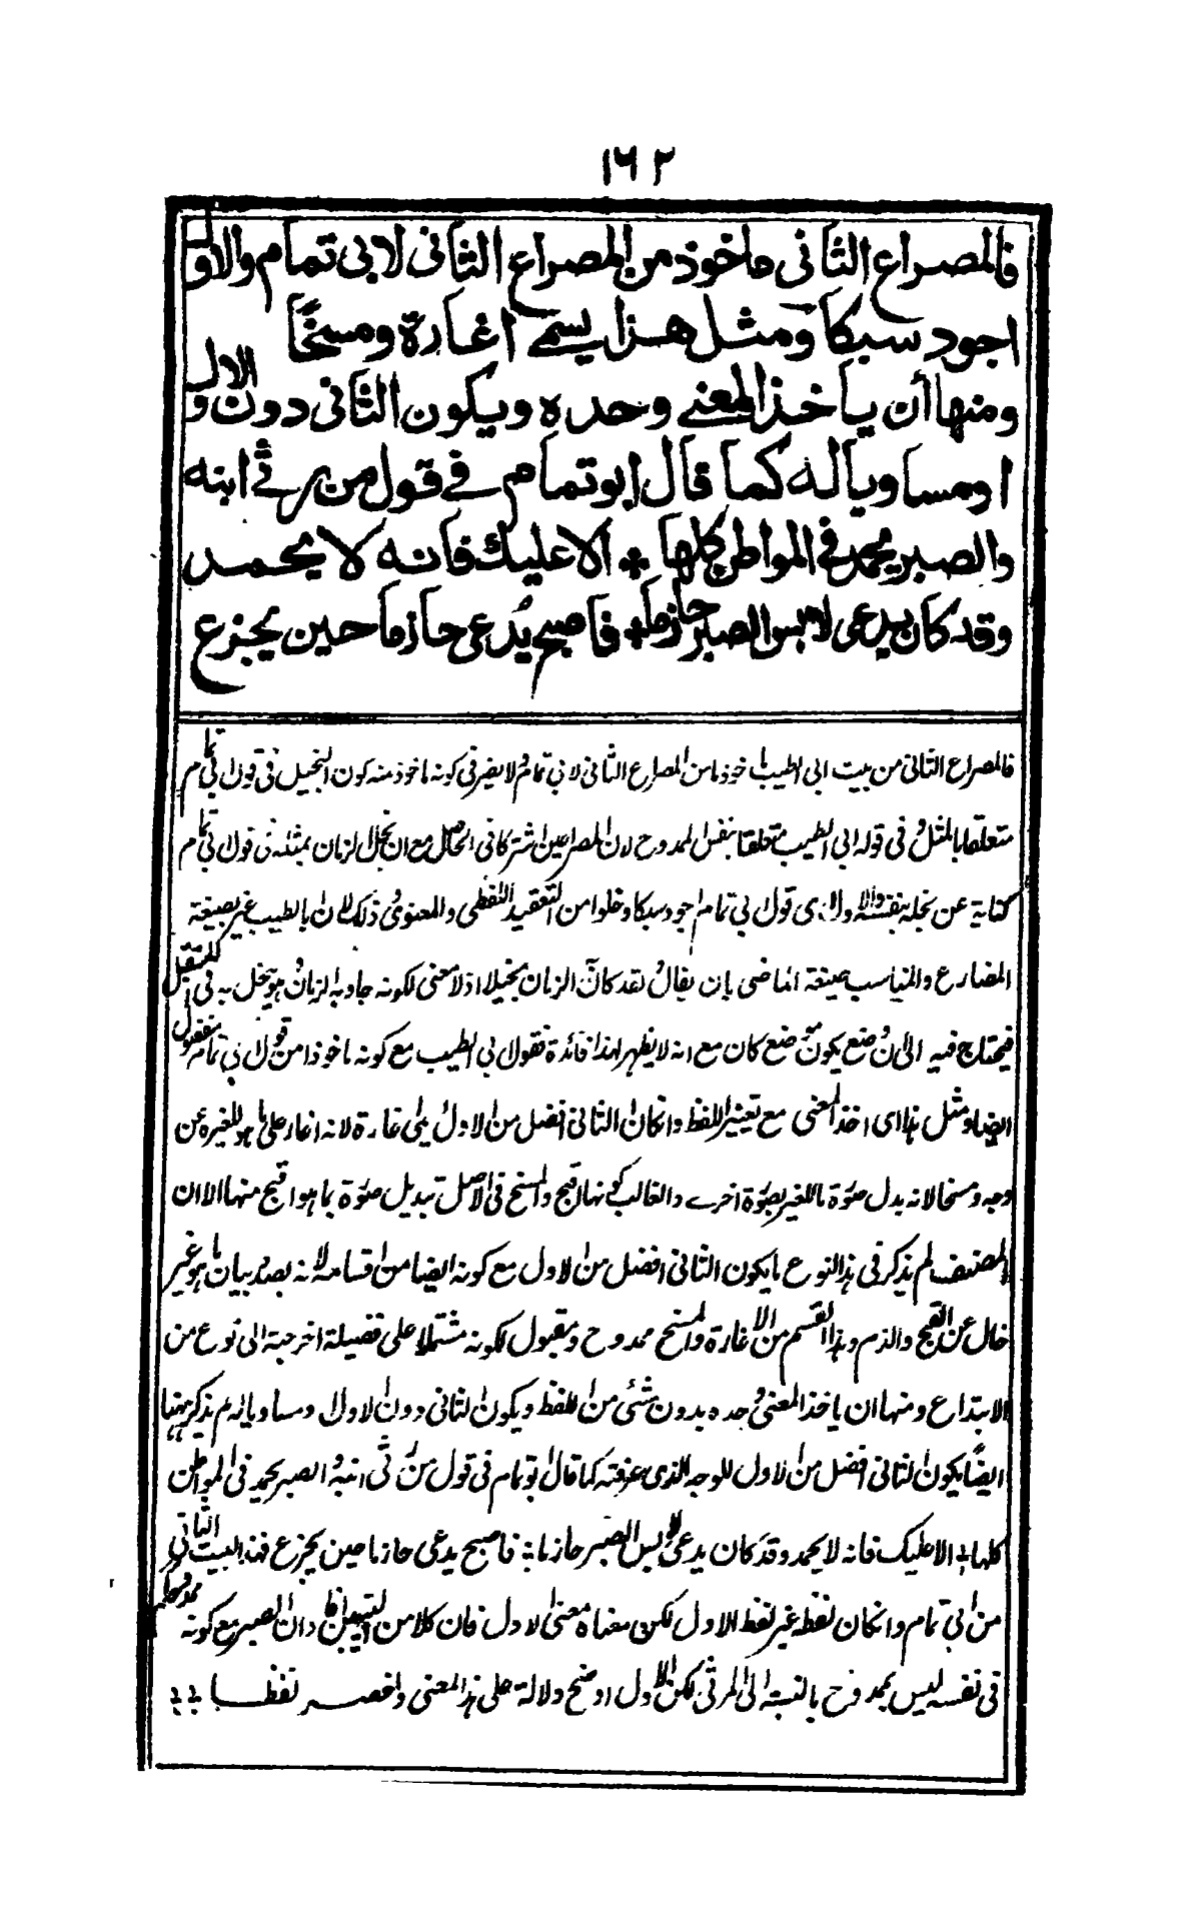 ١٦٢
فالمصراع الثانى ماخوذ من المصراع الثانى لابى تمام والاول
اجود سبكا ومثل هذا يسمى اغارة ومسخًا
ومنها أن ياخذ المعنى وحده ويكون الثانى دون الاول
او مساويا له كما قال ابو تمام فى قول من رثى ابنه
والصبر يحمد فى المواطن كلها * الا عليك فانه لا يحمد
وقد كان يدعى لابس الصبر حازما * فاصبح يُدعى حازما حين يجزع
فالمصراع الثانى من بيت ابى الطيب ماخوذ من المصراع الثانى لابى تمام ولا يضر فى كونه ماخوذ منه كون البخيل فى قول ابى تمام
متعلقا بالمثل وفى قول ابى الطيب متعلقا بنفس الممدوح لان المصراعين اشتركا فى الحاصل مع ان بخل الزمان بمثله فى قول ابى تمام
كناية عن بخله بنفسه والاول اى قول ابى تمام اجود سبكا وخلوا من التعقيد اللفظى والمعنوى وذلك لان ابا الطيب عبر بصيغة
المضارع والمناسب صيغة الماضى بان يقال لقد كان الزمان بخيلا اذ لا معنى لكونه جاد به الزمان وهو يبخل به فى المستقبل
فيحتاج فيه الى ان وضع يكون موضع كان مع انه لا يظهر لهذا فائدة فقول ابى الطيب مع كونه ماخوذا من قول ابى تمام مفضول
ايضا ومثل هذا اى اخذ المعنى مع تغيير اللفظ وان كان الثانى افضل من الاول يسمى اغارة لانه اغار على ما هو للغير عن
وجه ومسخا لانه بدل صورة ما للغير بصورة اخرى والغالب كونها اقبح والمسخ فى الاصل تبديل صورة بما هو اقبح منها الا ان
المصنف لم يذكر فى هذا النوع ما يكون الثانى افضل من الاول مع كونه ايضا من اقسامه لانه بصدد بيان ما هو غير
خال عن القبح والذم وهذا القسم من الاغارة والمسخ ممدوح ومقبول لكونه مشتملا على فضيلة اخرجته الى نوع من
الابتداع ومنها ان ياخذ المعنى وحده بدون شئ من اللفظ ويكون الثانى دون الاول ومساويا له لم يذكر ههنا
ايضًا يكون الثانى افضل من الاول للوجه الذى عرفته كما قال ابو تمام فى قول من رثى ابنه والصبر يحمد فى المواطن
كلها * الا عليك فانه لا يحمد وقد كان يدعى لابس الصبر حازما * فاصبح يدعى حازما حين يجزع فهذا البيت الثانى
من ابى تمام وان كان لفظه غير لفظ الاول لكن معناه معنى الاول فان كلا من البيتين افاد ان الصبر مع كونه ممدوحا
فى نفسه ليس بممدوح بالنسبة الى المرثى لكن الاول اوضح دلالة على هذا المعنى واخصر لفظا